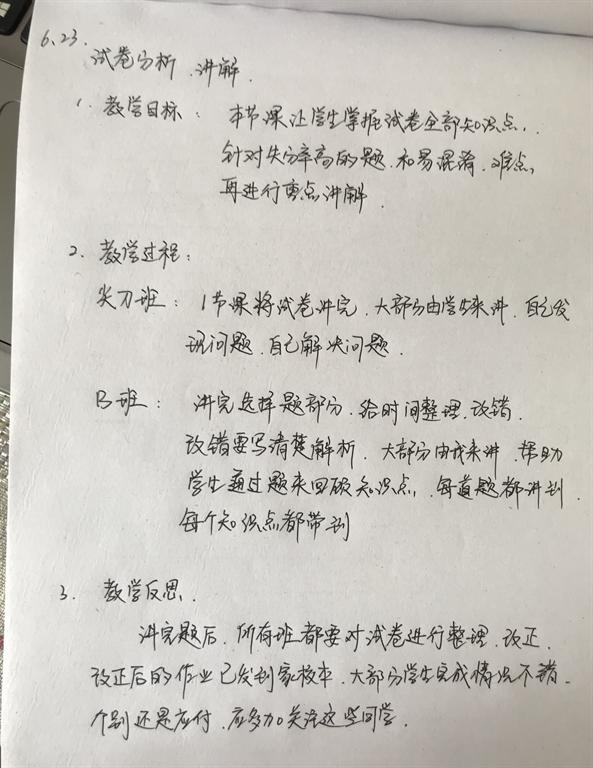 6.23.
试卷分析、讲解.
1. 教学目标： 本节课让学生掌握试卷全部知识点,
针对失分率高的题、和易混淆、难点,
再进行重点讲解.
2. 教学过程：
尖刀班： 1节课将试卷讲完、大部分由学生来讲、自己发
现问题、自己解决问题.
B班： 讲完选择题部分、给时间整理、改错.
改错要写清楚解析、大部分由我来讲、帮助
学生通过题来回顾知识点, 每道题都讲到,
每个知识点都带到
3. 教学反思.
讲完题后、所有班都要对试卷进行整理、改正.
改正后的作业已发到家校本、大部分学生完成情况不错.
个别还是应付、应多加关注这些同学.